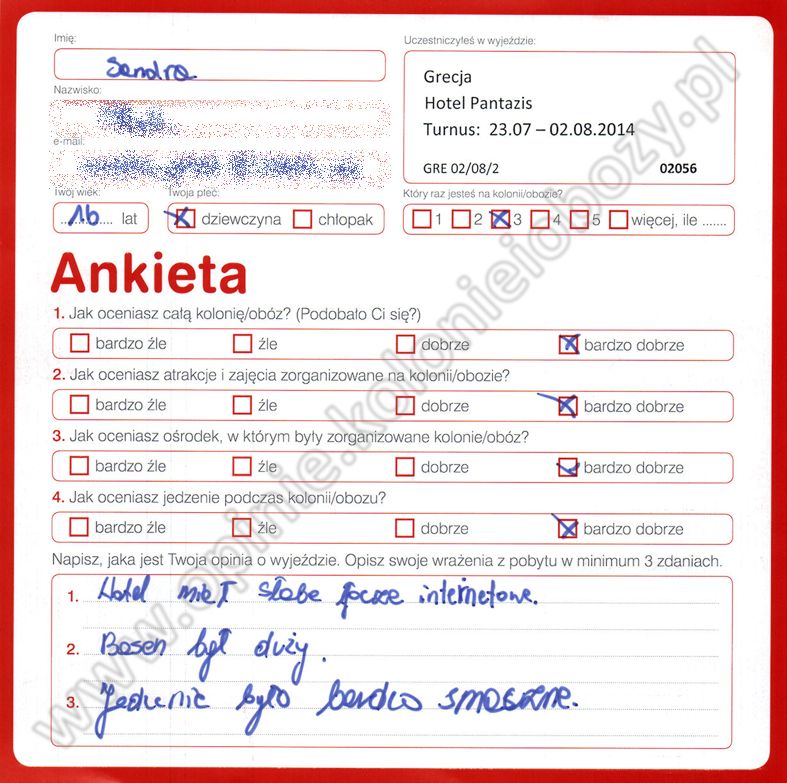 Imię:
Sandra
Nazwisko:
e-mail:
Twój wiek:
16 lat
Twoja płeć:
dziewczyna chłopak
Uczestniczyłeś w wyjeździe:
Grecja
Hotel Pantazis
Turnus: 23.07 – 02.08.2014
GRE 02/08/2 02056
Który raz jesteś na kolonii/obozie?
1 2 3 4 5 więcej, ile .......
Ankieta
1. Jak oceniasz całą kolonię/obóz? (Podobało Ci się?)
bardzo źle źle dobrze bardzo dobrze
2. Jak oceniasz atrakcje i zajęcia zorganizowane na kolonii/obozie?
bardzo źle źle dobrze bardzo dobrze
3. Jak oceniasz ośrodek, w którym były zorganizowane kolonie/obóz?
bardzo źle źle dobrze bardzo dobrze
4. Jak oceniasz jedzenie podczas kolonii/obozu?
bardzo źle źle dobrze bardzo dobrze
Napisz, jaka jest Twoja opinia o wyjeździe. Opisz swoje wrażenia z pobytu w minimum 3 zdaniach.
1. Hotel miał słabe łącze internetowe.
2. Basen był duży.
3. Jedzenie było bardzo smaczne.
www.opinie.kolonieiobozy.pl